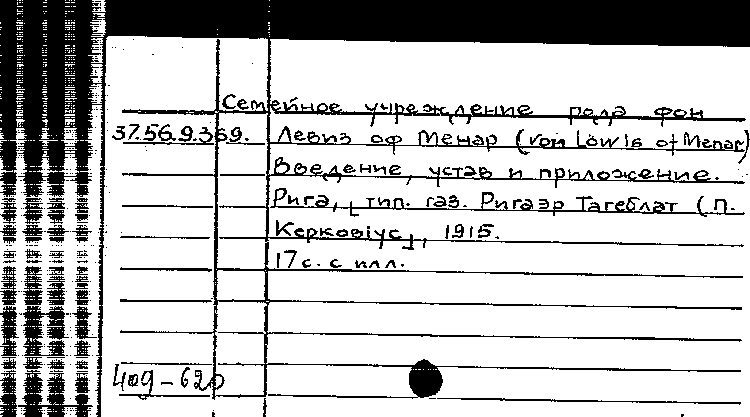 Семейное учреждение рода фон
37.56.9.369. Левиз оф Менар (von Löwis of Menar)
Введение, устав и приложение.
Рига, [тип. газ. Ригаэр Тагеблат (П.
Керковiус], 1915.
17 с. с илл.
409-620